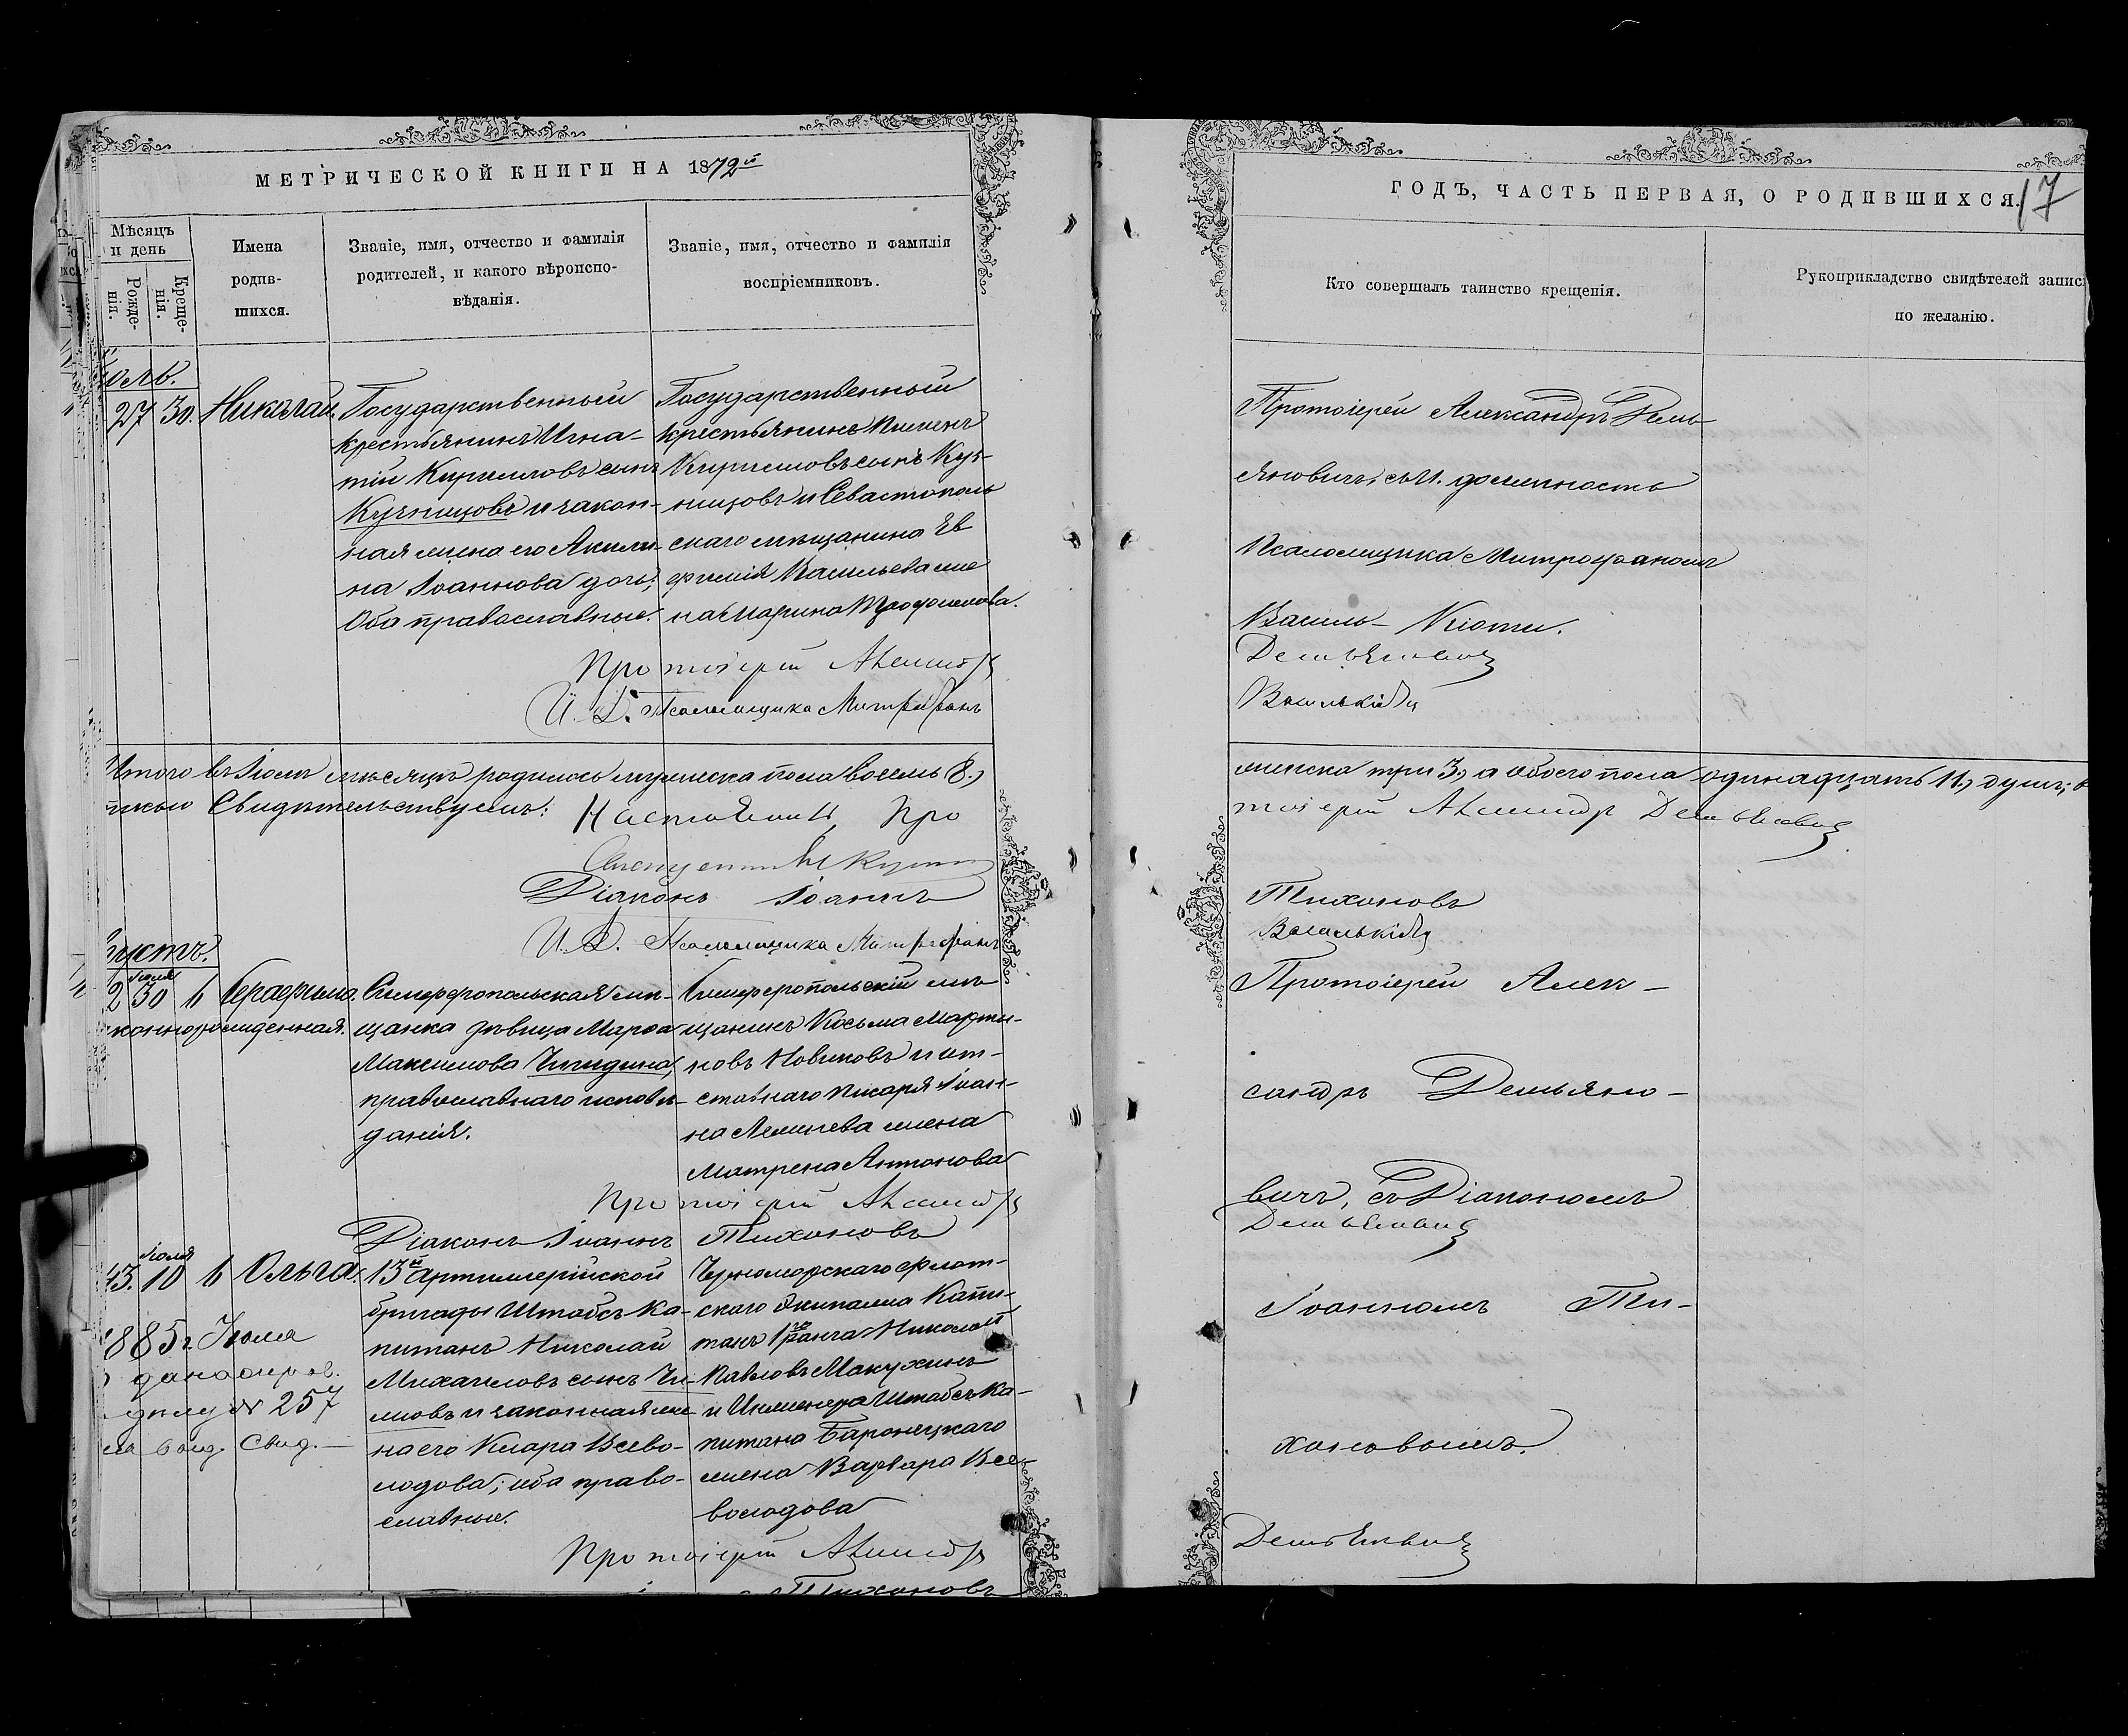 МЕТРИЧЕСКОЙ КНИГИ НА 1872й
Мѣсяцъ и день
Рожденія.
Крещенія.
Имена родившихся.
Званіе, имя, отчество и фамилія родителей, и какого вѣроисповѣданія.
Званіе, имя, отчество и фамилія воспріемниковъ.
27 30. Николай.
Государственный
крестьянинъ Игна-
тій Кириловъ сынъ
Кузнецовъ и закон-
ная жена его Акили-
на Іоаннова дочь;
Оба православные.
Государственный
крестьянинъ Пименъ
Кириловъ сынъ Куз-
нецовъ и Севастополь
скаго мѣщанина Ев
фимія Васильева же
на Марина Трофимова.
Протоіерей
И. Д. Псаломщика Митрофанъ
Итого въ Іюлѣ мѣсяцѣ родилось мужеска пола восемь 8.,
Свидѣтельствуемъ: Настоятель Про
Діаконъ Іоаннъ
И. Д. Псаломщика Митрофанъ
2 Іюля 30 6 Серафима.
Симферопольская мѣ-
щанка дѣвица Марфа
Максимова
православнаго исповѣ-
данія.
Симферопольскій мѣ-
щанинъ Косьма Марти-
новъ Новиковъ и от-
ставнаго писаря Іоан-
на жена
Матрена Антонова
Протоіерей
Діаконъ Іоаннъ Тихоновъ
43. Іюля 10 6 Ольга.
1885 г. Іюля
№ 257
Свид.
13й Артиллерійской
бригады Штабсъ-Ка-
питанъ Николай
Михаиловъ сынъ
и законная же
на его Клара Всево-
лодова; оба право-
славные.
Черноморскаго флот-
скаго Экипажа Капи-
танъ 1го ранга Николай
Павловъ Макухинъ
и Инженера Штабсъ-Ка-
питана Баронецкаго
жена Варвара Все-
володова
Протоіерей
Тихоновъ
ГОДЪ, ЧАСТЬ ПЕРВАЯ, О РОДИВШИХСЯ. 17
Кто совершалъ таинство крещенія.
Рукоприкладство свидѣтелей записи по желанію.
Протоіерей Александръ Демь
яновичъ, съ И. должность
Псаломщика Митрофаномъ
Василь-Кіоти.
Демьяновичъ
Василькіоти
женска три 3., а обоего пола одинадцать 11., душъ;
тоіерей Александръ Демьяновичъ
Тихоновъ
Васількіоти
Протоіерей Алек-
сандръ Демьяно-
вичъ, съ Діакономъ
Демьяновичъ
Іоанномъ Ти-
хоновымъ.
Демьяновичъ